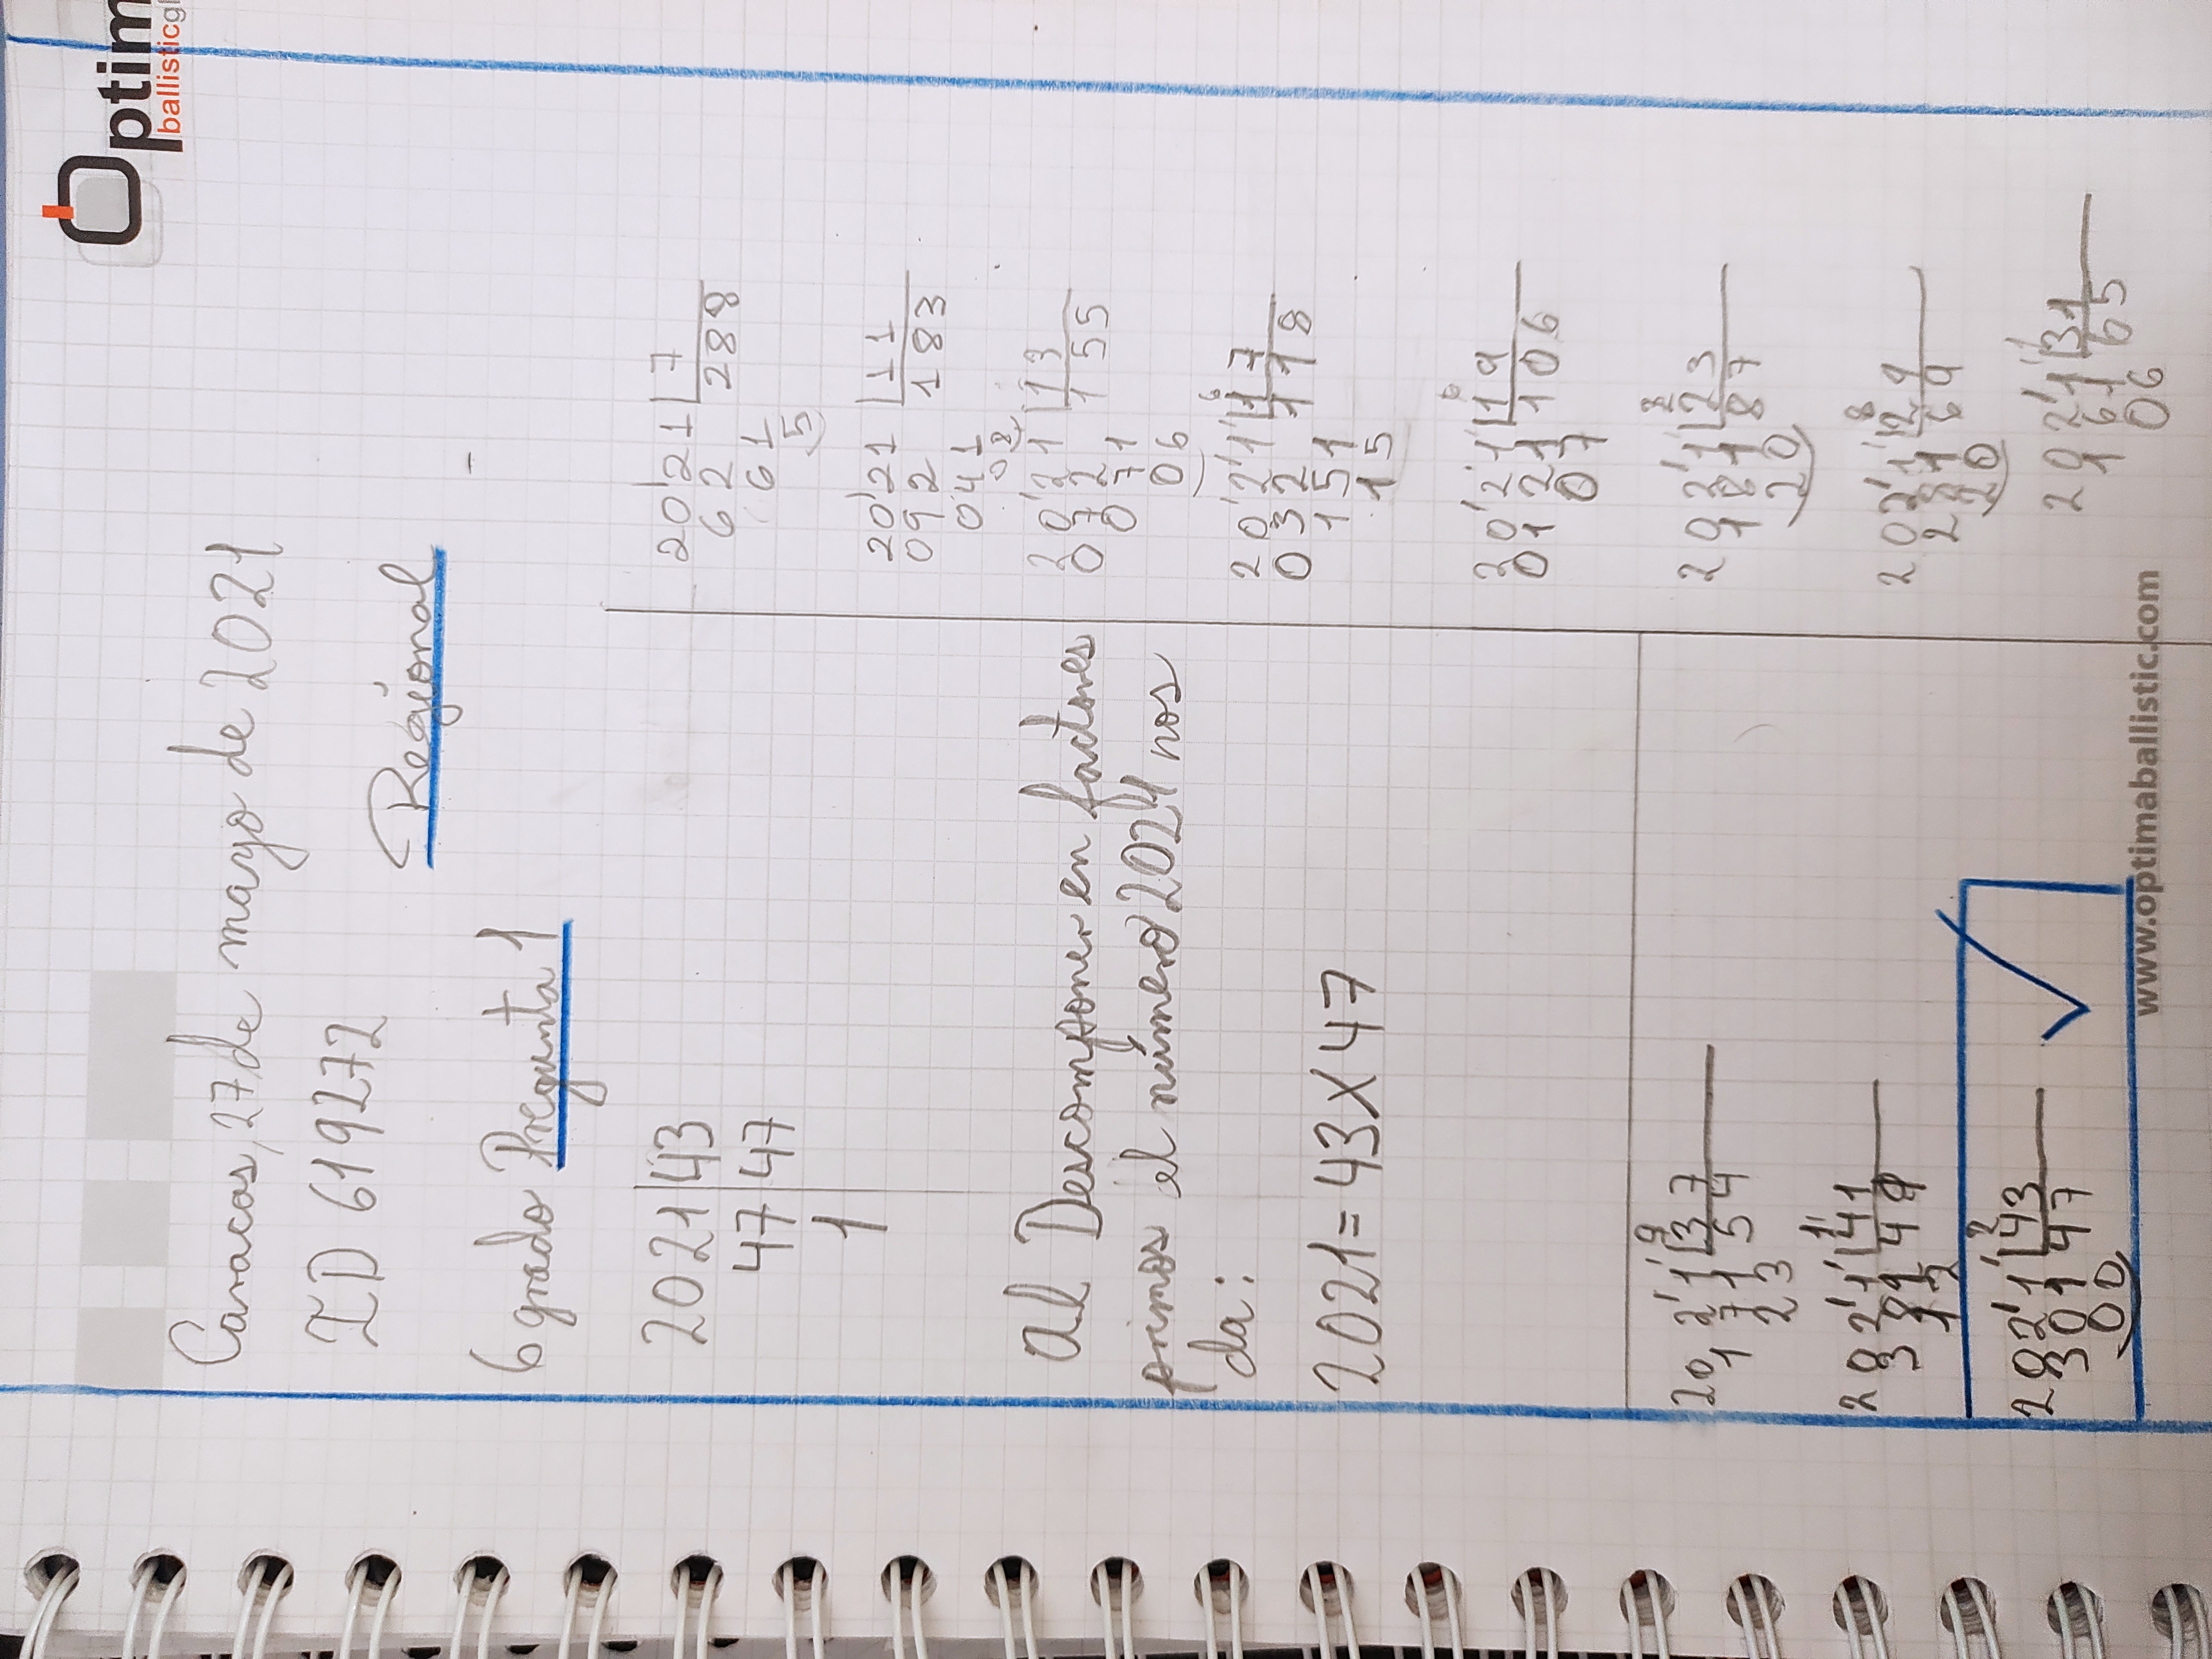 Optim
ballisticgl
Caracas, 27 de mayo de 2021
ID 619272
Regional
6 grado Pregunta 1
2021 | 43
47 | 47
1
Al Descomponer en factores
primos el número 2021 nos
da:
2021 = 43 X 47
2021 | 7
62 288
61
5
2021 | 11
092 183
041
08
2021 | 13
072 155
071
06
2021 | 17
032 118
151
15
2021 | 19
0121 106
07
2021 | 23
181 87
20
2021 | 29
281 69
20
2021 | 31
161 65
06
2021 | 37
171 54
23
2021 | 41
381 49
12
2021 | 43
301 47
00
www.optimaballistic.com